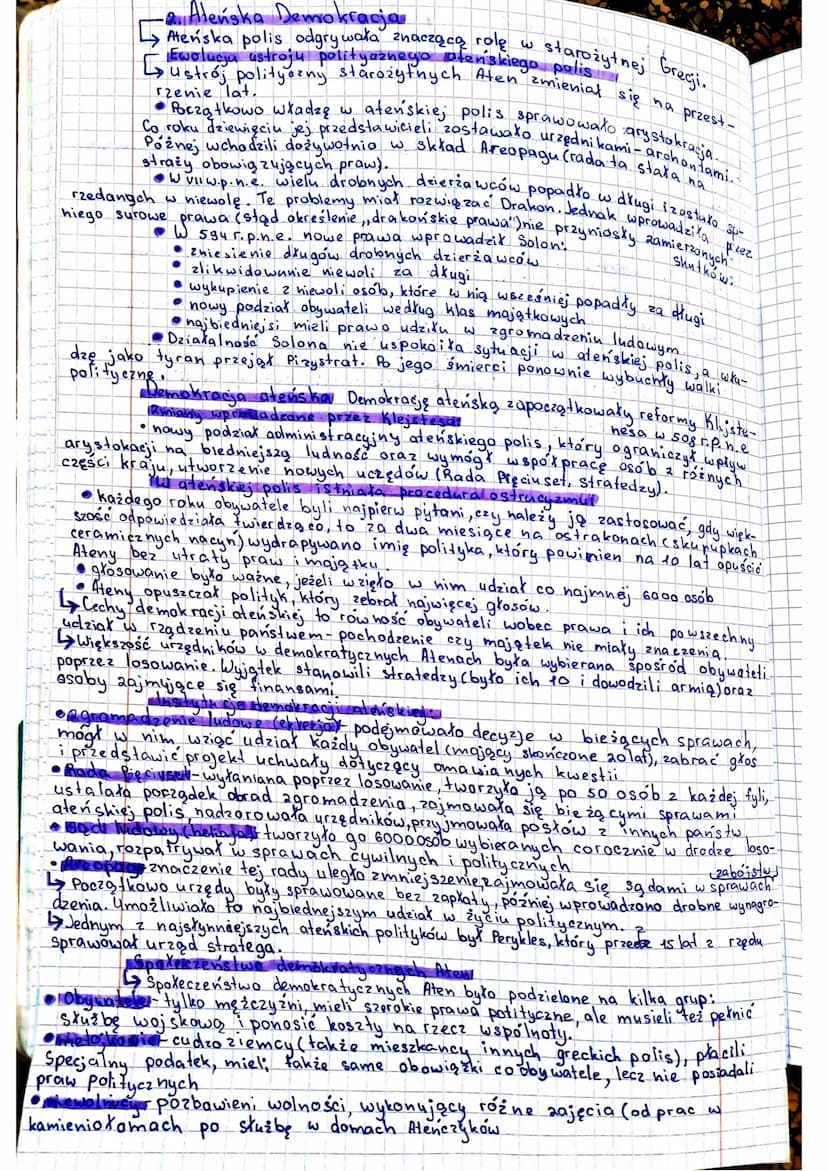 2. Ateńska Demokracja
Ateńska polis odgrywała znaczącą rolę w starożytnej Grecji.
Ewolucja ustroju politycznego ateńskiego polis
Ustrój polityczny starożytnych Aten zmieniał się na przest-
rzenie lat.
• Początkowo władzę w ateńskiej polis sprawowało arystokracja.
Co roku dziewięciu jej przedstawicieli zostawało urzędnikami-archontami.
Później wchodzili dożywotnio w skład Areopagu (rada ta stała na
straży obowiązujących praw).
• W VII w.p.n.e. wielu drobnych dzierżawców popadło w długi i zostało sp-
rzedanych w niewolę. Te problemy miał rozwiązać Drakon. Jednak wprowadziła przez
niego surowe prawa (stąd określenie „drakońskie prawa") nie przyniosły zamierzonych
skutków;
• W 594 r.p.n.e. nowe prawa wprowadził Solon:
• zniesienie długów drobnych dzierżawców
• zlikwidowanie niewoli za długi
• wykupienie z niewoli osób, które w nią wcześniej popadły za długi
• nowy podział obywateli według klas majątkowych
• najbiedniejsi mieli prawo udziłu w zgromadzeniu ludowym
• Działalność Solona nie uspokoiła sytuacji w ateńskiej polis, a wła-
dzę jako tyran przejął Pizystrat. Po jego śmierci ponownie wybuchły walki
polityczne.
Demokracja ateńska Demokrację ateńską zapoczątkowały reformy Klijste-
nesa w 508 r.p.n.e
Zmiany wprowadzone przez Klejstesa:
• nowy podział administracyjny ateńskiego polis, który ograniczył wpływ
arystokacji na biedniejszą ludność oraz wymógł współpracę osób z różnych
części kraju, utworzenie nowych uczędów (Rada Pięciuset, stratedzy).
W ateńskiej polis istniała procedura ostracyzmu:
• każdego roku obywatele byli najpierw pytani, czy należy ją zastosować, gdy więk-
szość odpowiedziała twierdząco, to za dwa miesiące na ostrakonach (skupupkach
ceramicznych naczyń) wydrapywano imię polityka, który powinien na 10 lat opuścić
Ateny bez utraty praw i majątku.
• głosowanie było ważne, jeżeli wzięło w nim udział co najmnej 6000 osób
• Ateny opuszczał polityk, który zebrał najwięcej głosów.
Cechy demokracji ateńskiej to równość obywateli wobec prawa i ich powszechny
udział w rządzeniu państwem - pochodzenie czy majątek nie miały znaczenia.
Większość urzędników w demokratycznych Atenach była wybierana spośród obywateli
poprzez losowanie. Wyjątek stanowili stratedzy (było ich 10 i dowodzili armią) oraz
osoby zajmujące się finansami.
Instytucje demokracji ateńskiej:
• zgromadzenie ludowe (eklezja) - podejmowało decyzje w bieżących sprawach,
mógł w nim wziąć udział każdy obywatel (mający skończone 20 lat), zabrać głos
i przedstawić projekt uchwały dotyczący omawianych kwestii
• Rada Pięciuset - wyłaniana poprzez losowanie, tworzyła ją po 50 osób z każdej fyli,
ustalała porządek obrad zgromadzenia, zajmowała się bieżącymi sprawami
ateńskiej polis, nadzorowała urzędników, przyjmowała posłów z innych państw
• Sąd ludowy (heliaja) - tworzyło go 6000 osób wybieranych corocznie w drodze loso-
wania, rozpatrywał w sprawach cywilnych i politycznych
• Areopag - znaczenie tej rady uległo zmniejszenie, zajmowała się sądami w sprawach zabójstw
Początkowo urzędy były sprawowane bez zapłaty, później wprowadzono drobne wynagro-
dzenia. Umożliwiało to najbiedniejszym udział w życiu politycznym.
Jednym z najsłynniejszych ateńskich polityków był Perykles, który przez 15 lat z rzędu
sprawował urząd stratega.
Społeczeństwo demokratycznych Aten
Społeczeństwo demokratycznych Aten było podzielone na kilka grup:
• Obywatele - tylko mężczyźni, mieli szerokie prawa polityczne, ale musieli też pełnić
służbę wojskową i ponosić koszty na rzecz wspólnoty.
• Metojkowie - cudzoziemcy (także mieszkańcy innych greckich polis), płacili
specjalny podatek, mieli także same obowiązki co obywatele, lecz nie posiadali
praw politycznych
• Niewolnicy - pozbawieni wolności, wykonujący różne zajęcia (od prac w
kamieniołomach po służbę w domach Ateńczyków